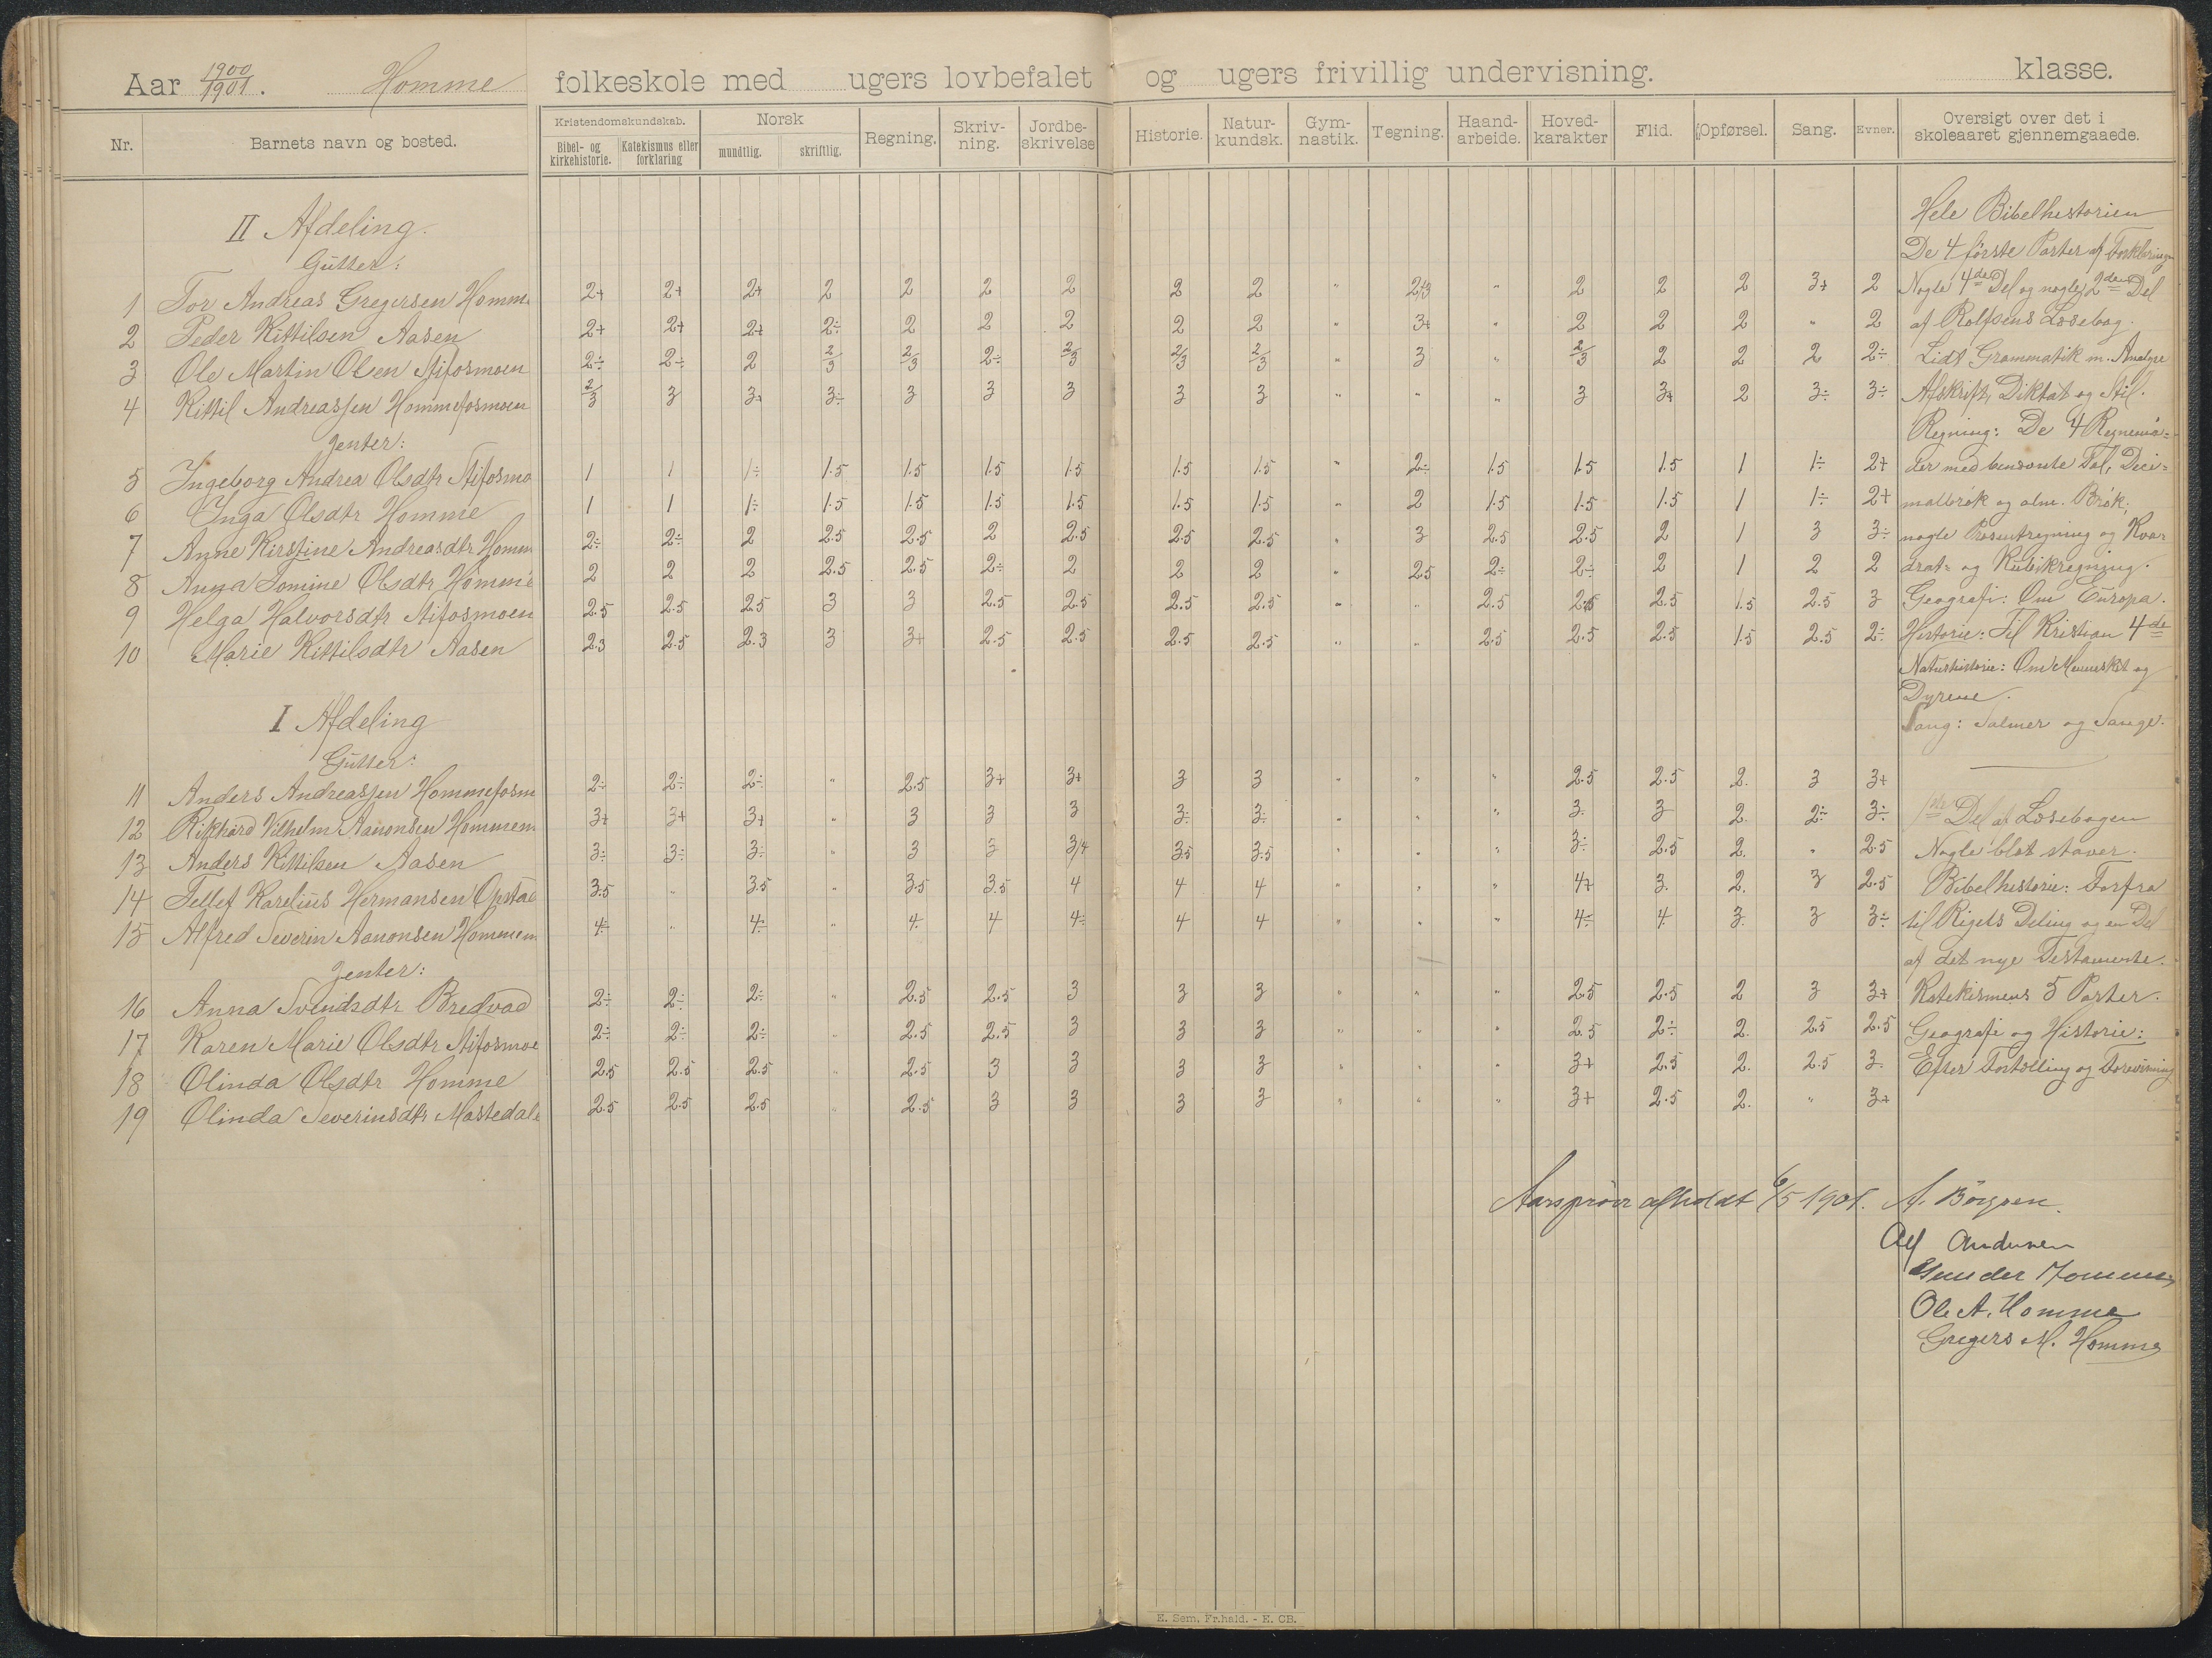 Aar 1900/1901. Homme folkeskole med ugers lovbefalet og ugers frivillig undervisning. klasse.
Nr. Barnets navn og bosted. Kristendomskundskab. Bibel- og kirkehistorie. Katekismus eller forklaring Norsk mundtlig. skriftlig. Regning. Skriv-ning. Jordbe-skrivelse Historie. Natur-kundsk. Gym-nastik. Tegning. Haand-arbeide. Hoved-karakter Flid. Opførsel. Sang. Evner. Oversigt over det i skoleaaret gjennemgaaede.
II Afdeling.
Gutter:
1 Tor Andreas Gregersen Homme 2+ 2+ 2+ 2 2 2 2 2 2 " 2/3 " 2 2 2 3+ 2
2 Peder Kittilsen Aasen 2+ 2+ 2+ 2÷ 2 2 2 2 2 " 3+ " 2 2 2 " 2
3 Ole Martin Olsen Stifosmoen 2÷ 2÷ 2 2/3 2/3 2÷ 2/3 2/3 2/3 " 3 " 2/3 2 2 2 2÷
4 Kittil Andreassen Hommefosmoen 2/3 3 3+ 3÷ 3 3 3 3 3 " " " 3 3+ 2 3÷ 3÷
Jenter:
5 Ingeborg Andrea Olsdtr Stifosmo 1 1 1÷ 1.5 1.5 1.5 1.5 1.5 1.5 " 2÷ 1.5 1.5 1.5 1 1÷ 2+
6 Inga Olsdtr Homme 1 1 1÷ 1.5 1.5 1.5 1.5 1.5 1.5 " 2 1.5 1.5 1.5 1 1÷ 2+
7 Anne Kirstine Andreasdtr Homm 2÷ 2÷ 2 2.5 2.5 2 2.5 2.5 2.5 " 3 2.5 2.5 2 1 3 3÷
8 Anna Tomine Olsdtr Homme 2 2 2 2.5 2.5 2÷ 2 2 2 " 2.5 2÷ 2÷ 2 1 2 2
9 Helga Halvorsdtr Stifosmoen 2.5 2.5 2.5 3 3 2.5 2.5 2.5 2.5 " " 2.5 2.5 2.5 1.5 2.5 3
10 Marie Kittilsdtr Aasen 2.3 2.5 2.3 3 3+ 2.5 2.5 2.5 2.5 " " 2.5 2.5 2.5 1.5 2.5 2÷
I Afdeling
Gutter:
11 Anders Andreassen Hommefosm 2÷ 2÷ 2÷ " 2.5 3+ 3+ 3 3 " " " 2.5 2.5 2. 3 3+
12 Rikhard Vilhelm Aanonsen Hommem 3+ 3+ 3+ " 3 3 3 3÷ 3÷ " " " 3. 3 2. 2÷ 3÷
13 Anders Kittilsen Aasen 3÷ 3÷ 3÷ " 3 3 3/4 3.5 3.5 " " " 3÷ 2.5 2. " 2.5
14 Tellef Karelius Hermansen Opstad 3.5 " 3.5 " 3.5 3.5 4 4 4 " " " 4+ 3. 2. 3 2.5
15 Alfred Severin Aanonsen Hommem 4÷ " 4÷ " 4. 4 4÷ 4 4 " " " 4÷ 4. 3. 3 3÷
Jenter:
16 Anna Svendsdtr Bredvad 2÷ 2÷ 2÷ " 2.5 2.5 3 3 3 " " " 2.5 2.5 2 3 3+
17 Karen Marie Olsdtr Stifosmoe 2÷ 2÷ 2÷ " 2.5 2.5 3 3 3 " " " 2.5 2÷ 2. 2.5 2.5
18 Olinda Olsdtr Homme 2.5 2.5 2.5 " 2.5 3 3 3 3 " " " 3+ 2.5 2. 2.5 3.
19 Olinda Severinsdtr Mastedale 2.5 2.5 2.5 " 2.5 3 3 3 3 " " " 3+ 2.5 2. " 3+
Hele Bibelhistorien
De 4 første Parter af Forklaringen
Nogle 4de Del og nogle 2den Del
af Rolfsens Læsebog.
Lidt Grammatik m. Analyse
Afskrift, Diktat og Stil.
Regning: De 4 Regnemaa=
der med benævnte Tal, Deci=
malbrøk og alm. Brøk,
nogle Prosentregning og Kva=
drat= og Kubikregning.
Geografi: Om Europa.
Historie: Til Kristian 4de
Naturhistorie: Om Mennesket og
Dyrene.
Sang: Salmer og Sange.
1ste Del af Læsebogen
Nogle blot staver.
Bibelhistorie: Forfra
til Rigets Deling og en Del
af det nye Testamente.
Katekismens 5 Parter.
Geografi og Historie:
Efter Fortælling og Forevisning
Aarsprøve afholdt 6/5 1901. A. Børresen.
Andersen
Gunder Homme
Ole A. Homme
Gregers M. Homme
E. Sem. Fr.hald. - E. CB.